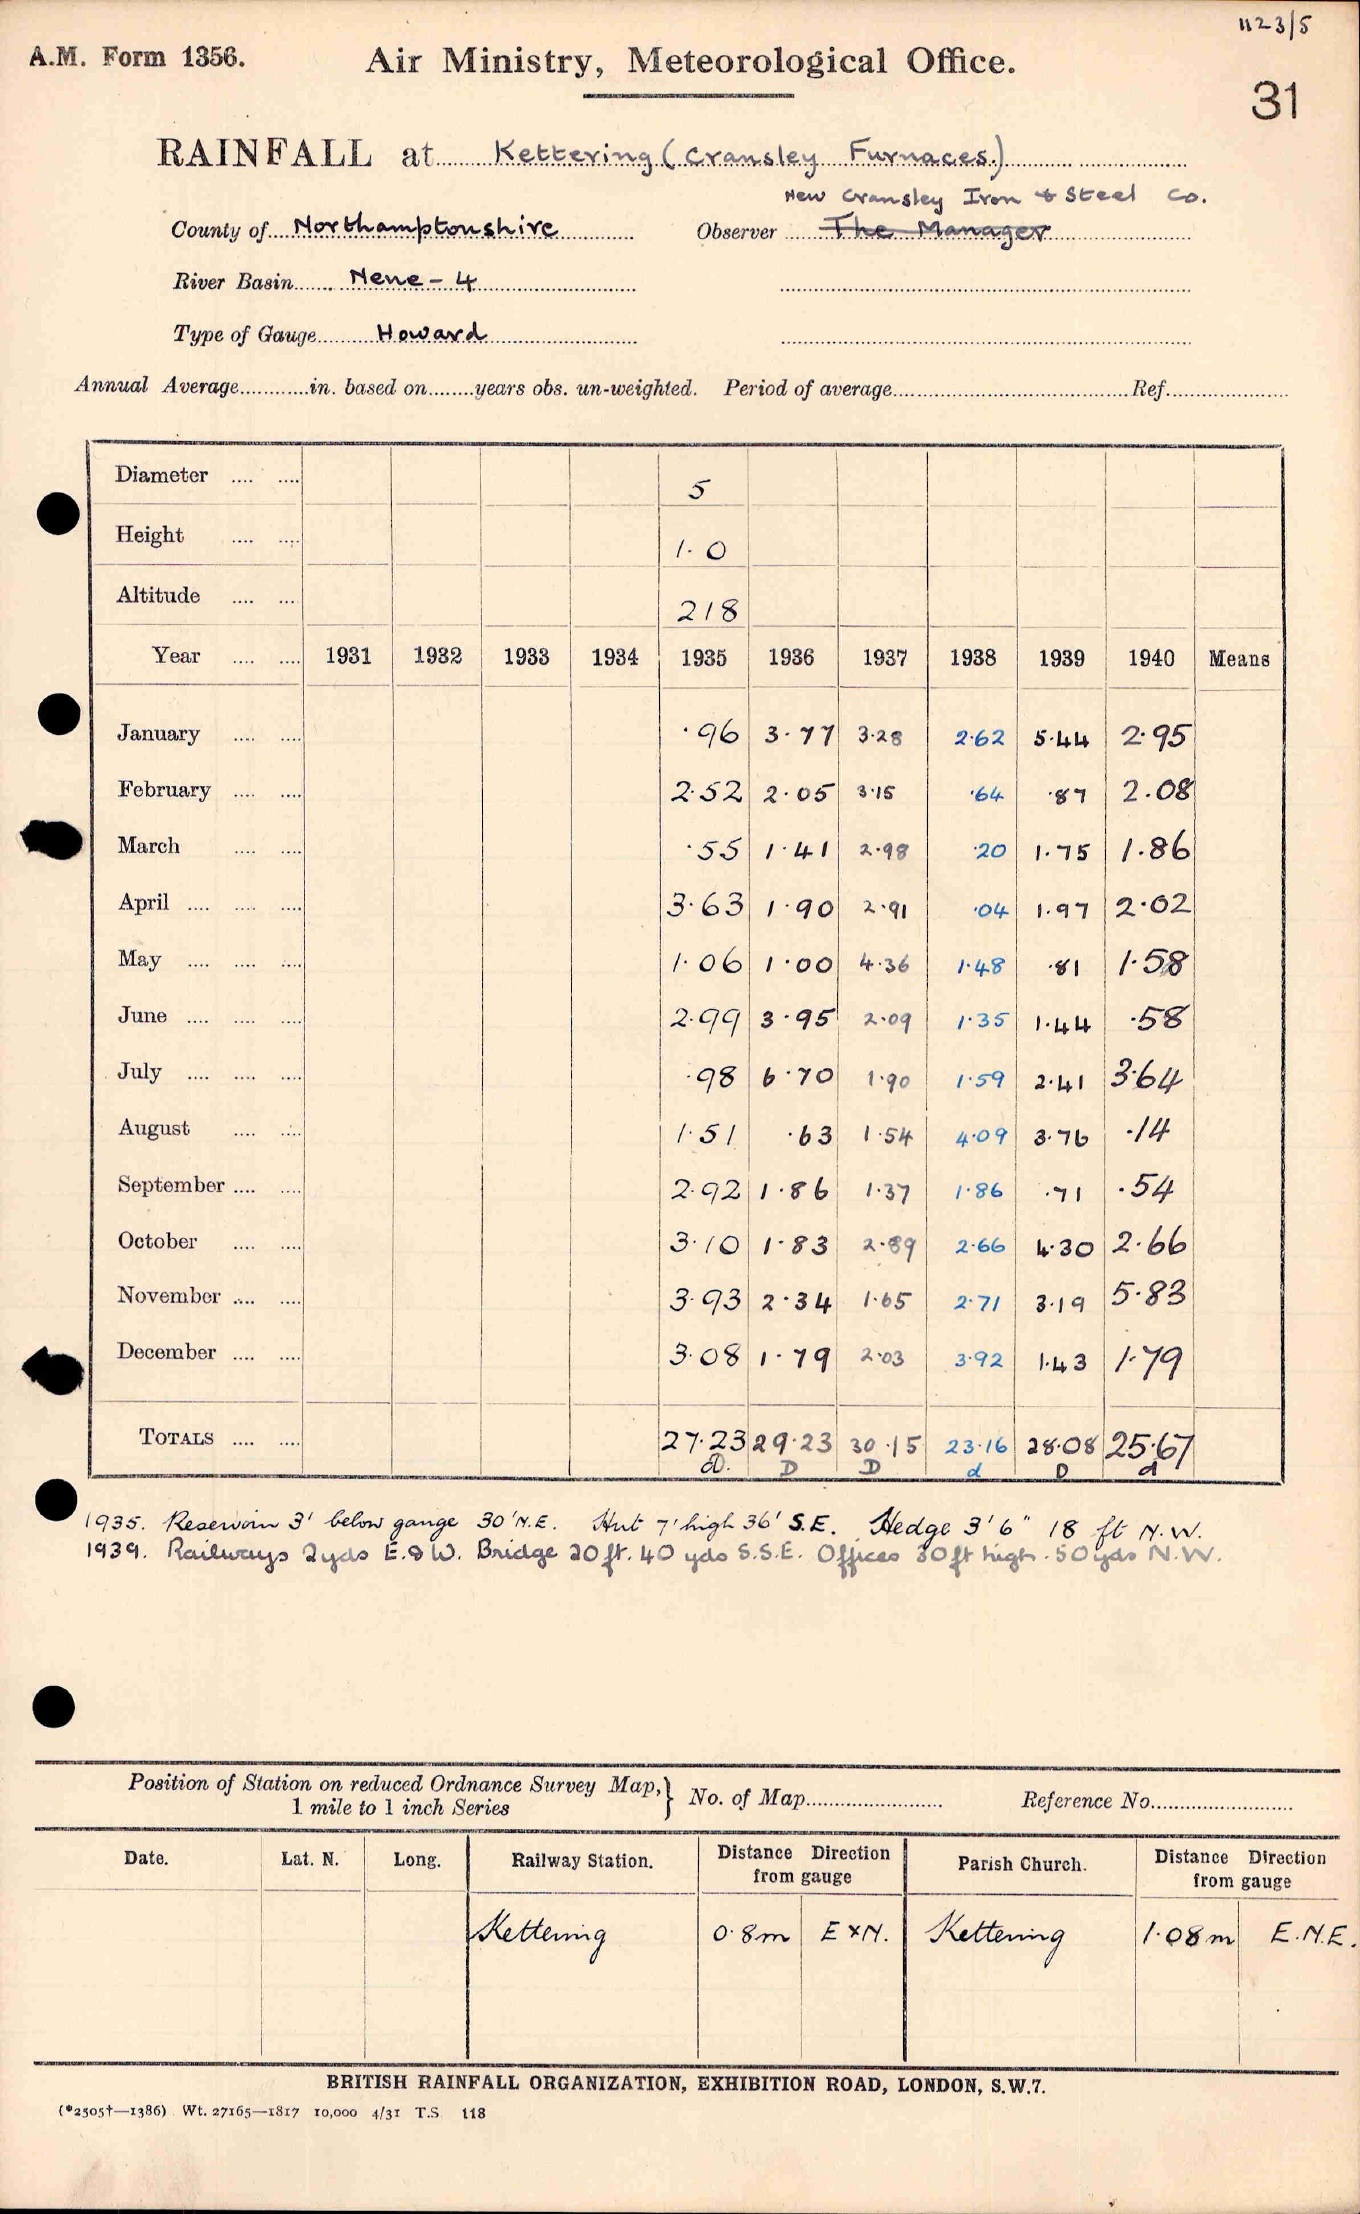 1123/5
A.M. Form 1356. Air Ministry, Meteorological Office.
31
RAINFALL at Kettering (Cransley Furnaces.)
New Cransley Iron & Steel Co.
County of Northamptonshire Observer The Manager
River Basin Nene - 4
Type of Gauge Howard
Annual Average in. based on years obs. un-weighted. Period of average Ref.
Diameter 5
Height 1.0
Altitude 218
Year 1931 1932 1933 1934 1935 1936 1937 1938 1939 1940 Means
January .96 3.77 3.28 2.62 5.44 2.95
February 2.52 2.05 3.15 .64 .87 2.08
March .55 1.41 2.98 .20 1.75 1.86
April 3.63 1.90 2.91 .04 1.97 2.02
May 1.06 1.00 4.36 1.48 .81 1.58
June 2.99 3.95 2.09 1.35 1.44 .58
July .98 6.70 1.90 1.59 2.41 3.64
August 1.51 .63 1.54 4.09 3.76 .14
September 2.92 1.86 1.37 1.86 .71 .54
October 3.10 1.83 2.89 2.66 4.30 2.66
November 3.93 2.34 1.65 2.71 3.19 5.83
December 3.08 1.79 2.03 3.92 1.43 1.79
TOTALS 27.23 29.23 30.15 23.16 28.08 25.67
D. D D d D d
1935. Reservoir 3' below gauge 30' N.E. Hut 7' high 36' S.E. Hedge 3'6" 18 ft N.W.
1939. Railways 2yds E.&W. Bridge 20ft. 40 yds S.S.E. Offices 30ft high. 50yds N.W.
Position of Station on reduced Ordnance Survey Map, } No. of Map Reference No.
1 mile to 1 inch Series
Date. Lat. N. Long. Railway Station. Distance Direction from gauge Parish Church. Distance Direction from gauge
Kettering 0.8m E×N. Kettering 1.08m E.N.E.
BRITISH RAINFALL ORGANIZATION, EXHIBITION ROAD, LONDON, S.W.7.
(*2505†—1386) Wt. 27165—1817 10,000 4/31 T.S. 118